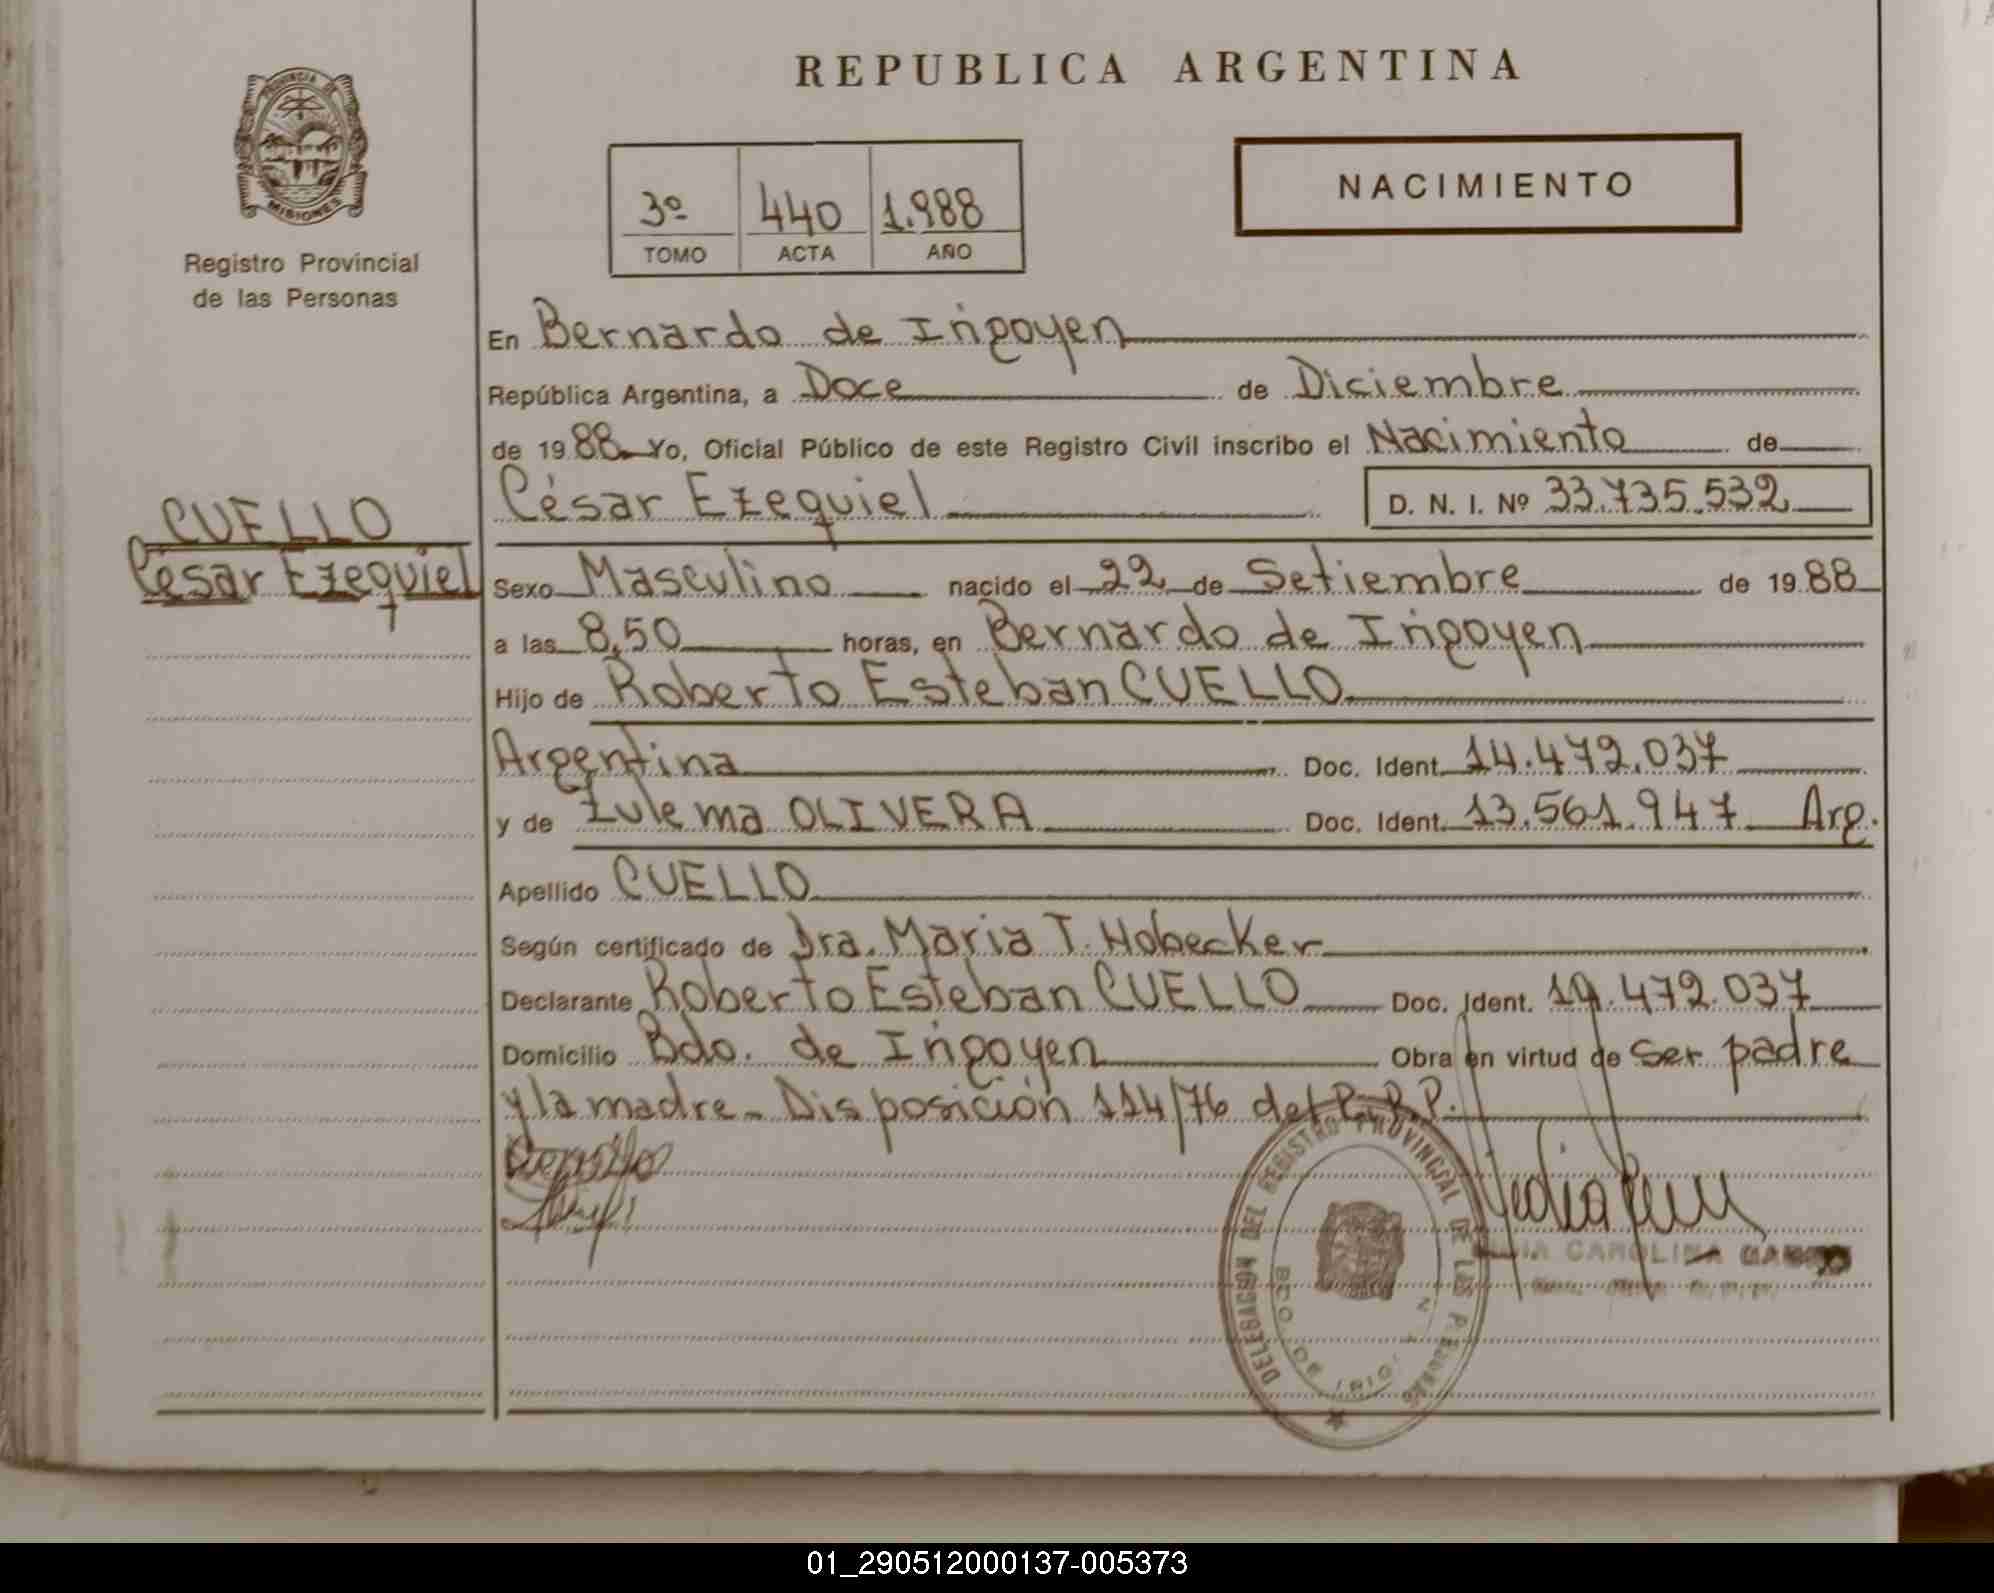 REPUBLICA ARGENTINA
PROVINCIA DE
MISIONES
Registro Provincial
de las Personas
3º 440 1.988
TOMO ACTA AÑO
NACIMIENTO
En Bernardo de Irigoyen
República Argentina, a Doce de Diciembre
de 1988 Yo, Oficial Público de este Registro Civil inscribo el Nacimiento de
César Ezequiel D. N. I. Nº 33.735.532
CUELLO
César Ezequiel
Sexo Masculino nacido el 22 de Setiembre de 1988
a las 8,50 horas, en Bernardo de Irigoyen
Hijo de Roberto Esteban CUELLO
Argentina Doc. Ident. 14.472.037
y de Zulema OLIVERA Doc. Ident. 13.561.947 Arg.
Apellido CUELLO
Según certificado de Dra. Maria T. Hobecker
Declarante Roberto Esteban CUELLO Doc. Ident. 14.472.037
Domicilio Bdo. de Irigoyen Obra en virtud de ser padre
y la madre - Disposición 114/76 del R.P.P.
DELEGACION DEL REGISTRO PROVINCIAL DE LAS PERSONAS
BDO. DE IRIG
CAROLINA
01_290512000137-005373